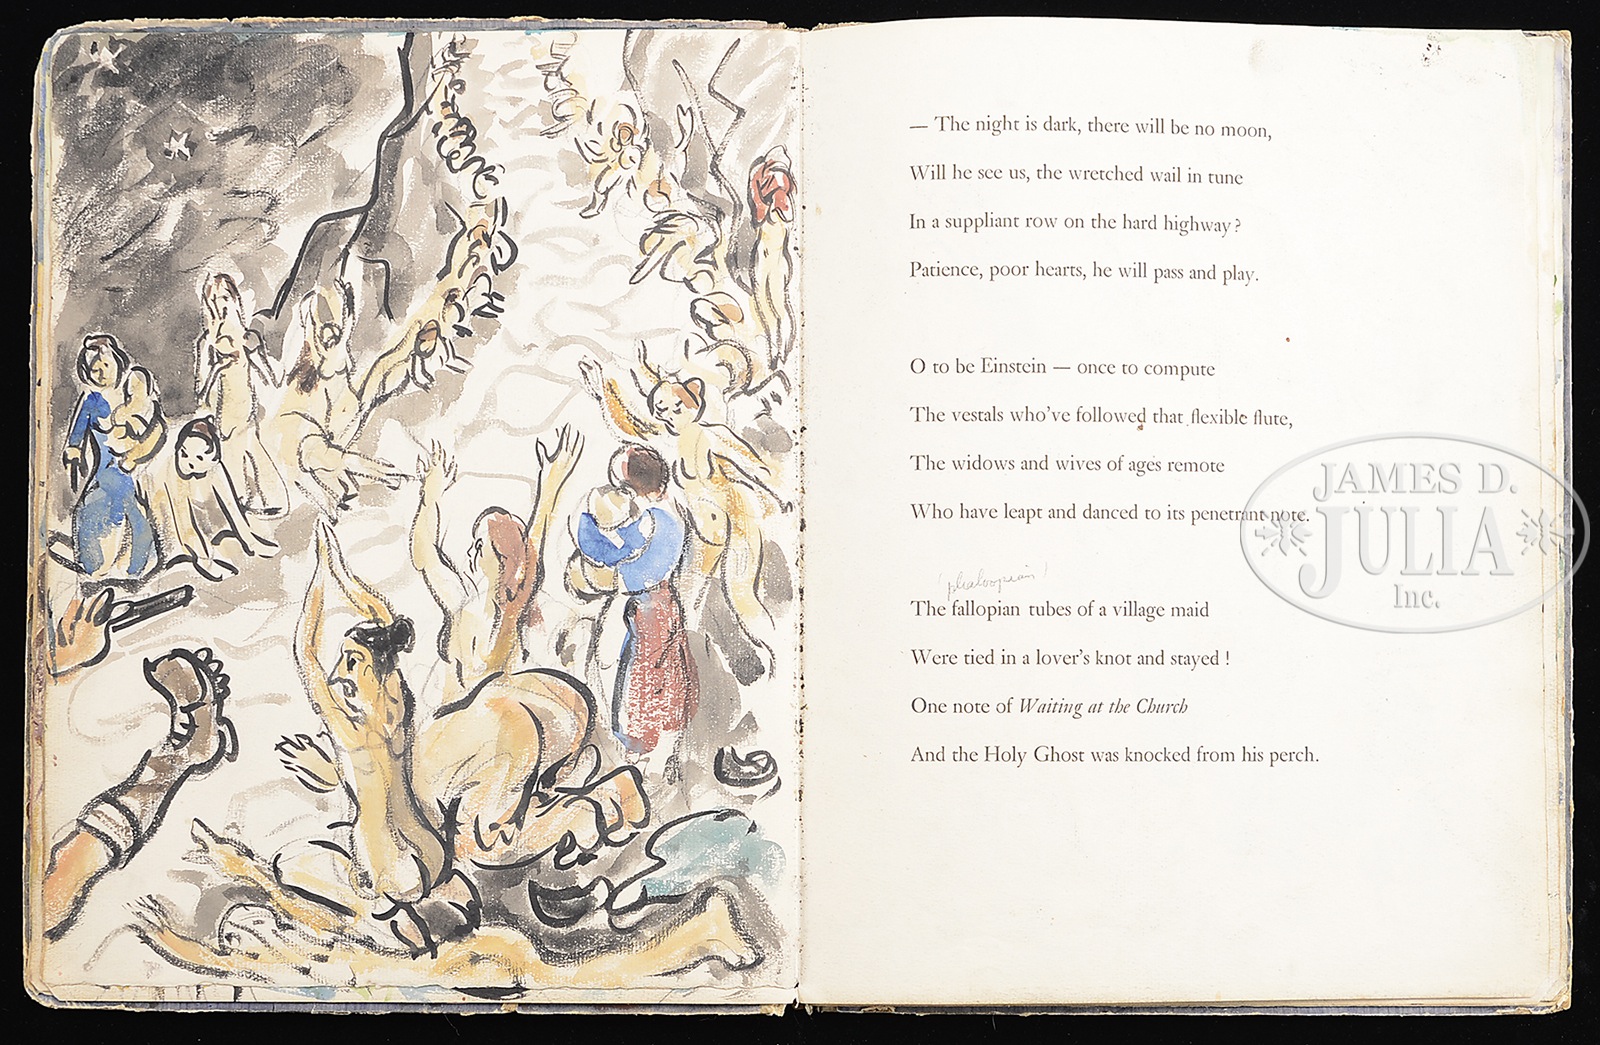 — The night is dark, there will be no moon,
Will he see us, the wretched wail in tune
In a suppliant row on the hard highway?
Patience, poor hearts, he will pass and play.
O to be Einstein — once to compute
The vestals who've followed that flexible flute,
The widows and wives of ages remote
Who have leapt and danced to its penetrant note.
The fallopian tubes of a village maid
Were tied in a lover's knot and stayed!
One note of Waiting at the Church
And the Holy Ghost was knocked from his perch.
JAMES D.
JULIA
Inc.